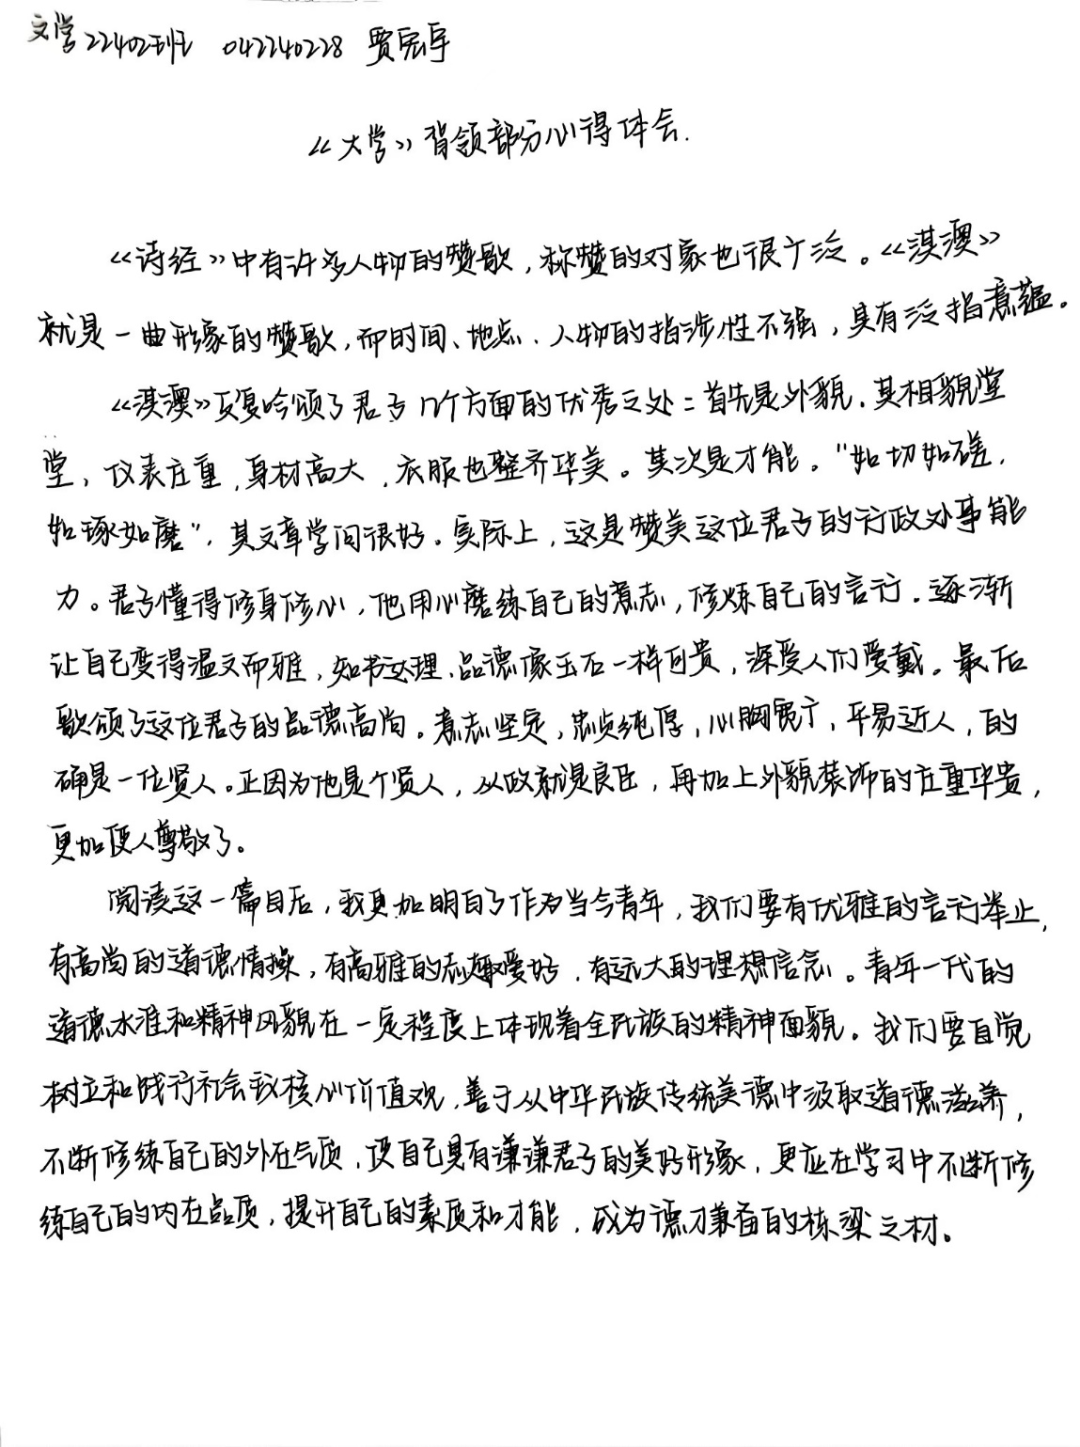 文学22402班 042240228 贾宏宇
《大学》背领部分心得体会.
《诗经》中有许多人物的赞歌，称赞的对象也很广泛。《淇澳》
就是一曲形象的赞歌，而时间、地点、人物的指涉性不强，具有泛指意蕴。
《淇澳》反复吟颂了君子几个方面的优秀之处：首先是外貌，其相貌堂
堂，仪表庄重，身材高大，衣服也整齐华美。其次是才能。"如切如磋，
如琢如磨"，其文章学问很好。实际上，这是赞美这位君子的行政处事能
力。君子懂得修身修心，他用心磨练自己的意志，修炼自己的言行，逐渐
让自己变得温文而雅，知书达理，品德像玉石一样可贵，深受人们爱戴。最后
歌颂了这位君子的品德高尚。意志坚定，忠贞纯厚，心胸宽广，平易近人，的
确是一位贤人。正因为他是个贤人，从政就是良臣，再加上外貌装饰的庄重华贵，
更加使人尊敬了。
阅读这一篇目后，我更加明白了作为当今青年，我们要有优雅的言行举止，
有高尚的道德情操，有高雅的志趣爱好，有远大的理想信念。青年一代的
道德水准和精神风貌在一定程度上体现着全民族的精神面貌。我们要自觉
树立和践行社会主义核心价值观，善于从中华民族传统美德中汲取道德滋养，
不断修练自己的外在气质，使自己具有谦谦君子的美好形象，更应在学习中不断修
练自己的内在品质，提升自己的素质和才能，成为德才兼备的栋梁之材。